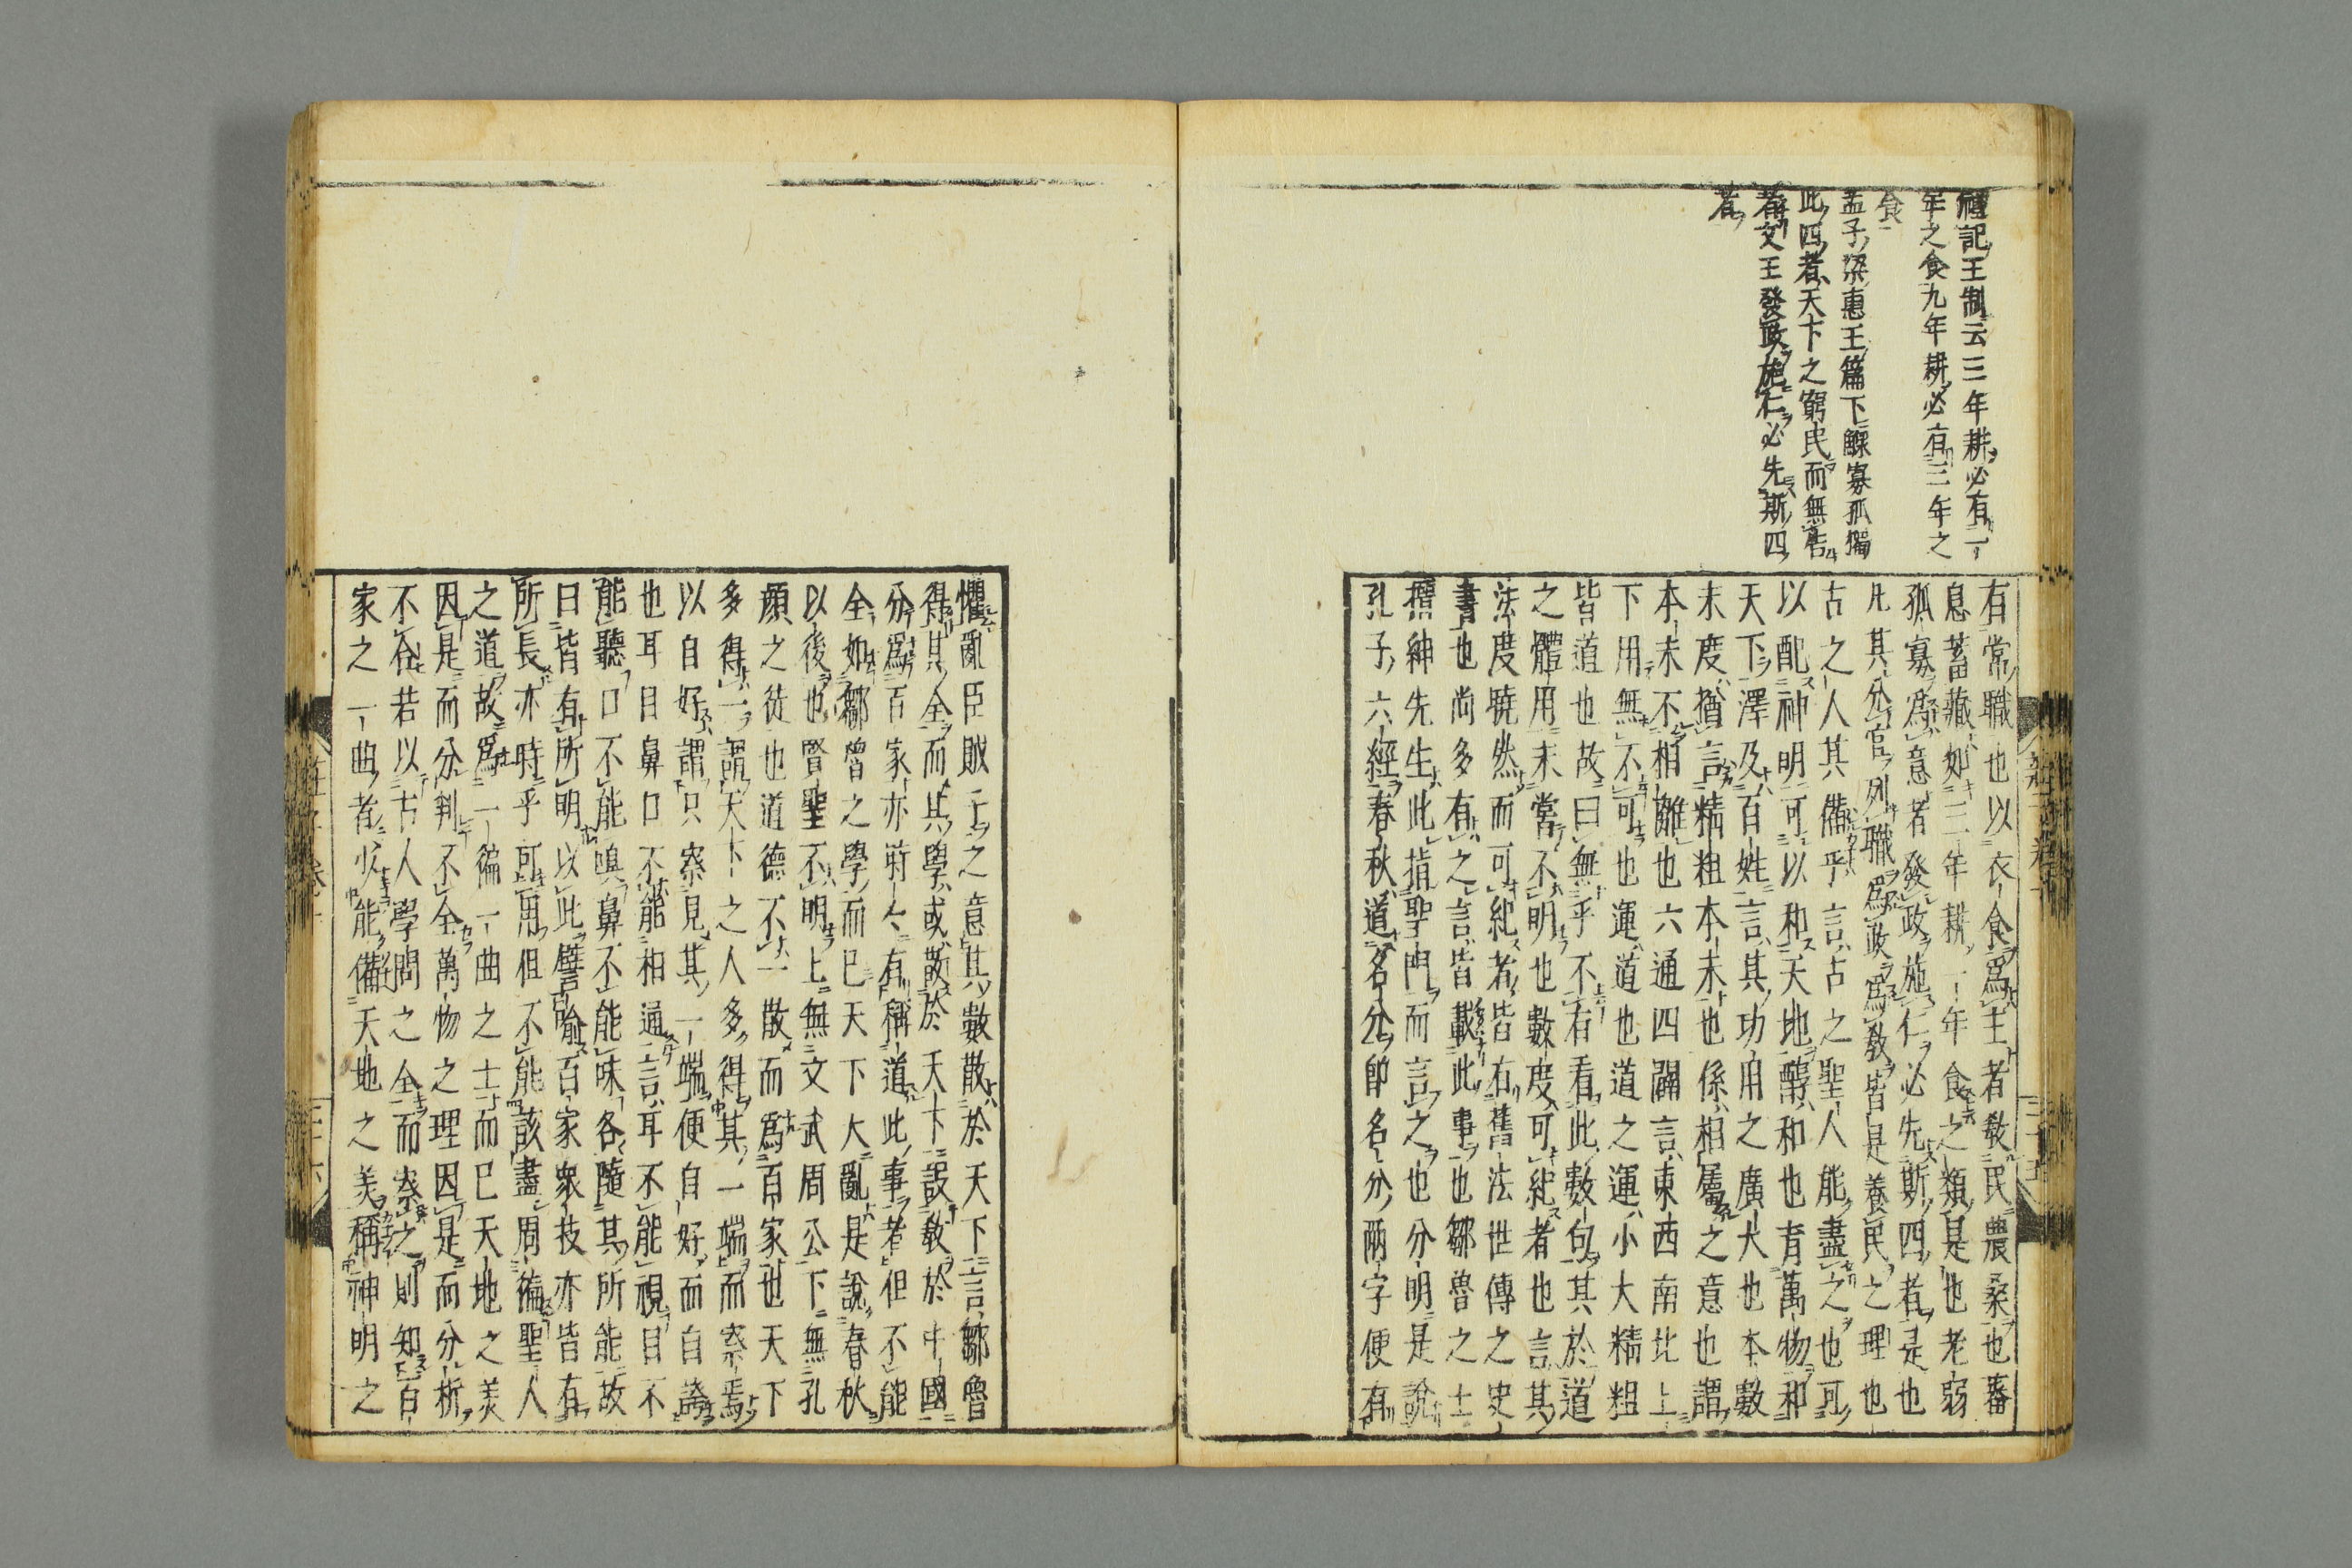 禮記王制云三年耕必有一
年之食九年耕必有三年之
食
孟子梁惠王篇下鰥寡孤獨
此四者天下之窮民而無告
者文王發政施仁必先斯四
者
有常職也以衣食爲主者敎民農桑也蕃
息蓄藏如三年耕一年食之類是也老弱
孤寡爲意者發政施仁必先斯四者是也
凡其分官列職爲政爲敎皆是養民之理也
古之人其備乎言古之聖人能盡之也可
以配神明可以和天地醇和也育萬物和
天下澤及百姓言其功用之廣大也本數
末度猶言精粗本末也係相屬之意也謂
本末不相離也六通四闢言東西南北上
下用無不可也運道也道之運小大精粗
皆道也故曰無乎不有看此數句其於道
之體用未嘗不明也數度可紀者也言其
法度曉然而可紀者皆右舊法世傳之史
書也尚多有之言皆載此事也鄒魯之士
搢紳先生此指聖門而言之也分明是說
孔子六經春秋道名分卽名分兩字便有
懼亂臣賊子之意其數散於天下言鄒魯
得其全而其學或散於天下設敎於中國
分爲百家亦時々有稱道此事者但不能
全如鄒魯之學而已天下大亂是說春秋
以後也賢聖不明上無文武周公下無孔
顏之徒也道德不一散而爲百家也天下
多得一謂天下之人多得其一端而察焉
以自好謂只察見其一端便自好而自誇
也耳目鼻口不能相通言耳不能視目不
能聽口不能嗅鼻不能味各隨其所能故
曰皆有所明以此譬喩百家衆技亦皆有
所長亦時乎可用但不能該盡周徧聖人
之道故爲一徧一曲之士而已天地之美
因是而分判不全萬物之理因是而分析
不全若以古人學問之全而察之則知百
家之一曲者少能備天地之美稱神明之